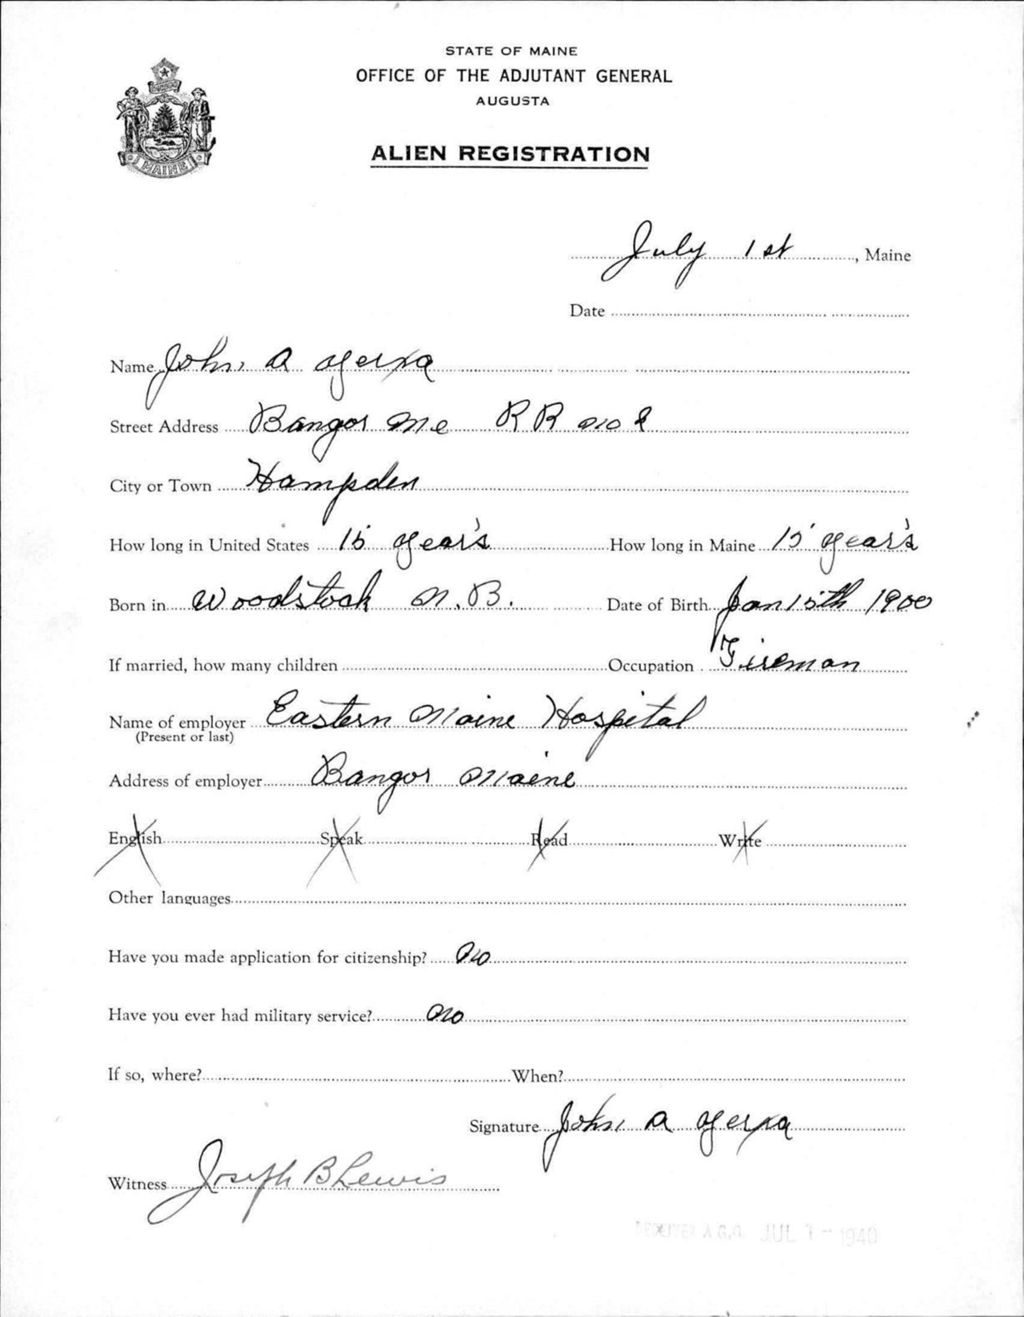 STATE OF MAINE
OFFICE OF THE ADJUTANT GENERAL
AUGUSTA
ALIEN REGISTRATION
MAINE
July 1st, Maine
Date
Name John A Yerxa
Street Address Bangor Me RR No 2
City or Town Hampden
How long in United States 15 Year's How long in Maine 15 Year's
Born in Woodstock N.B. Date of Birth Jan 15th 1900
If married, how many children Occupation Fireman
Name of employer Eastern Maine Hospital
(Present or last)
Address of employer Bangor Maine
English Speak Read Write
Other languages
Have you made application for citizenship? No
Have you ever had military service? No
If so, where? When?
Signature John A Yerxa
Witness Joseph B Lewis
A.G.O. JUL 1940